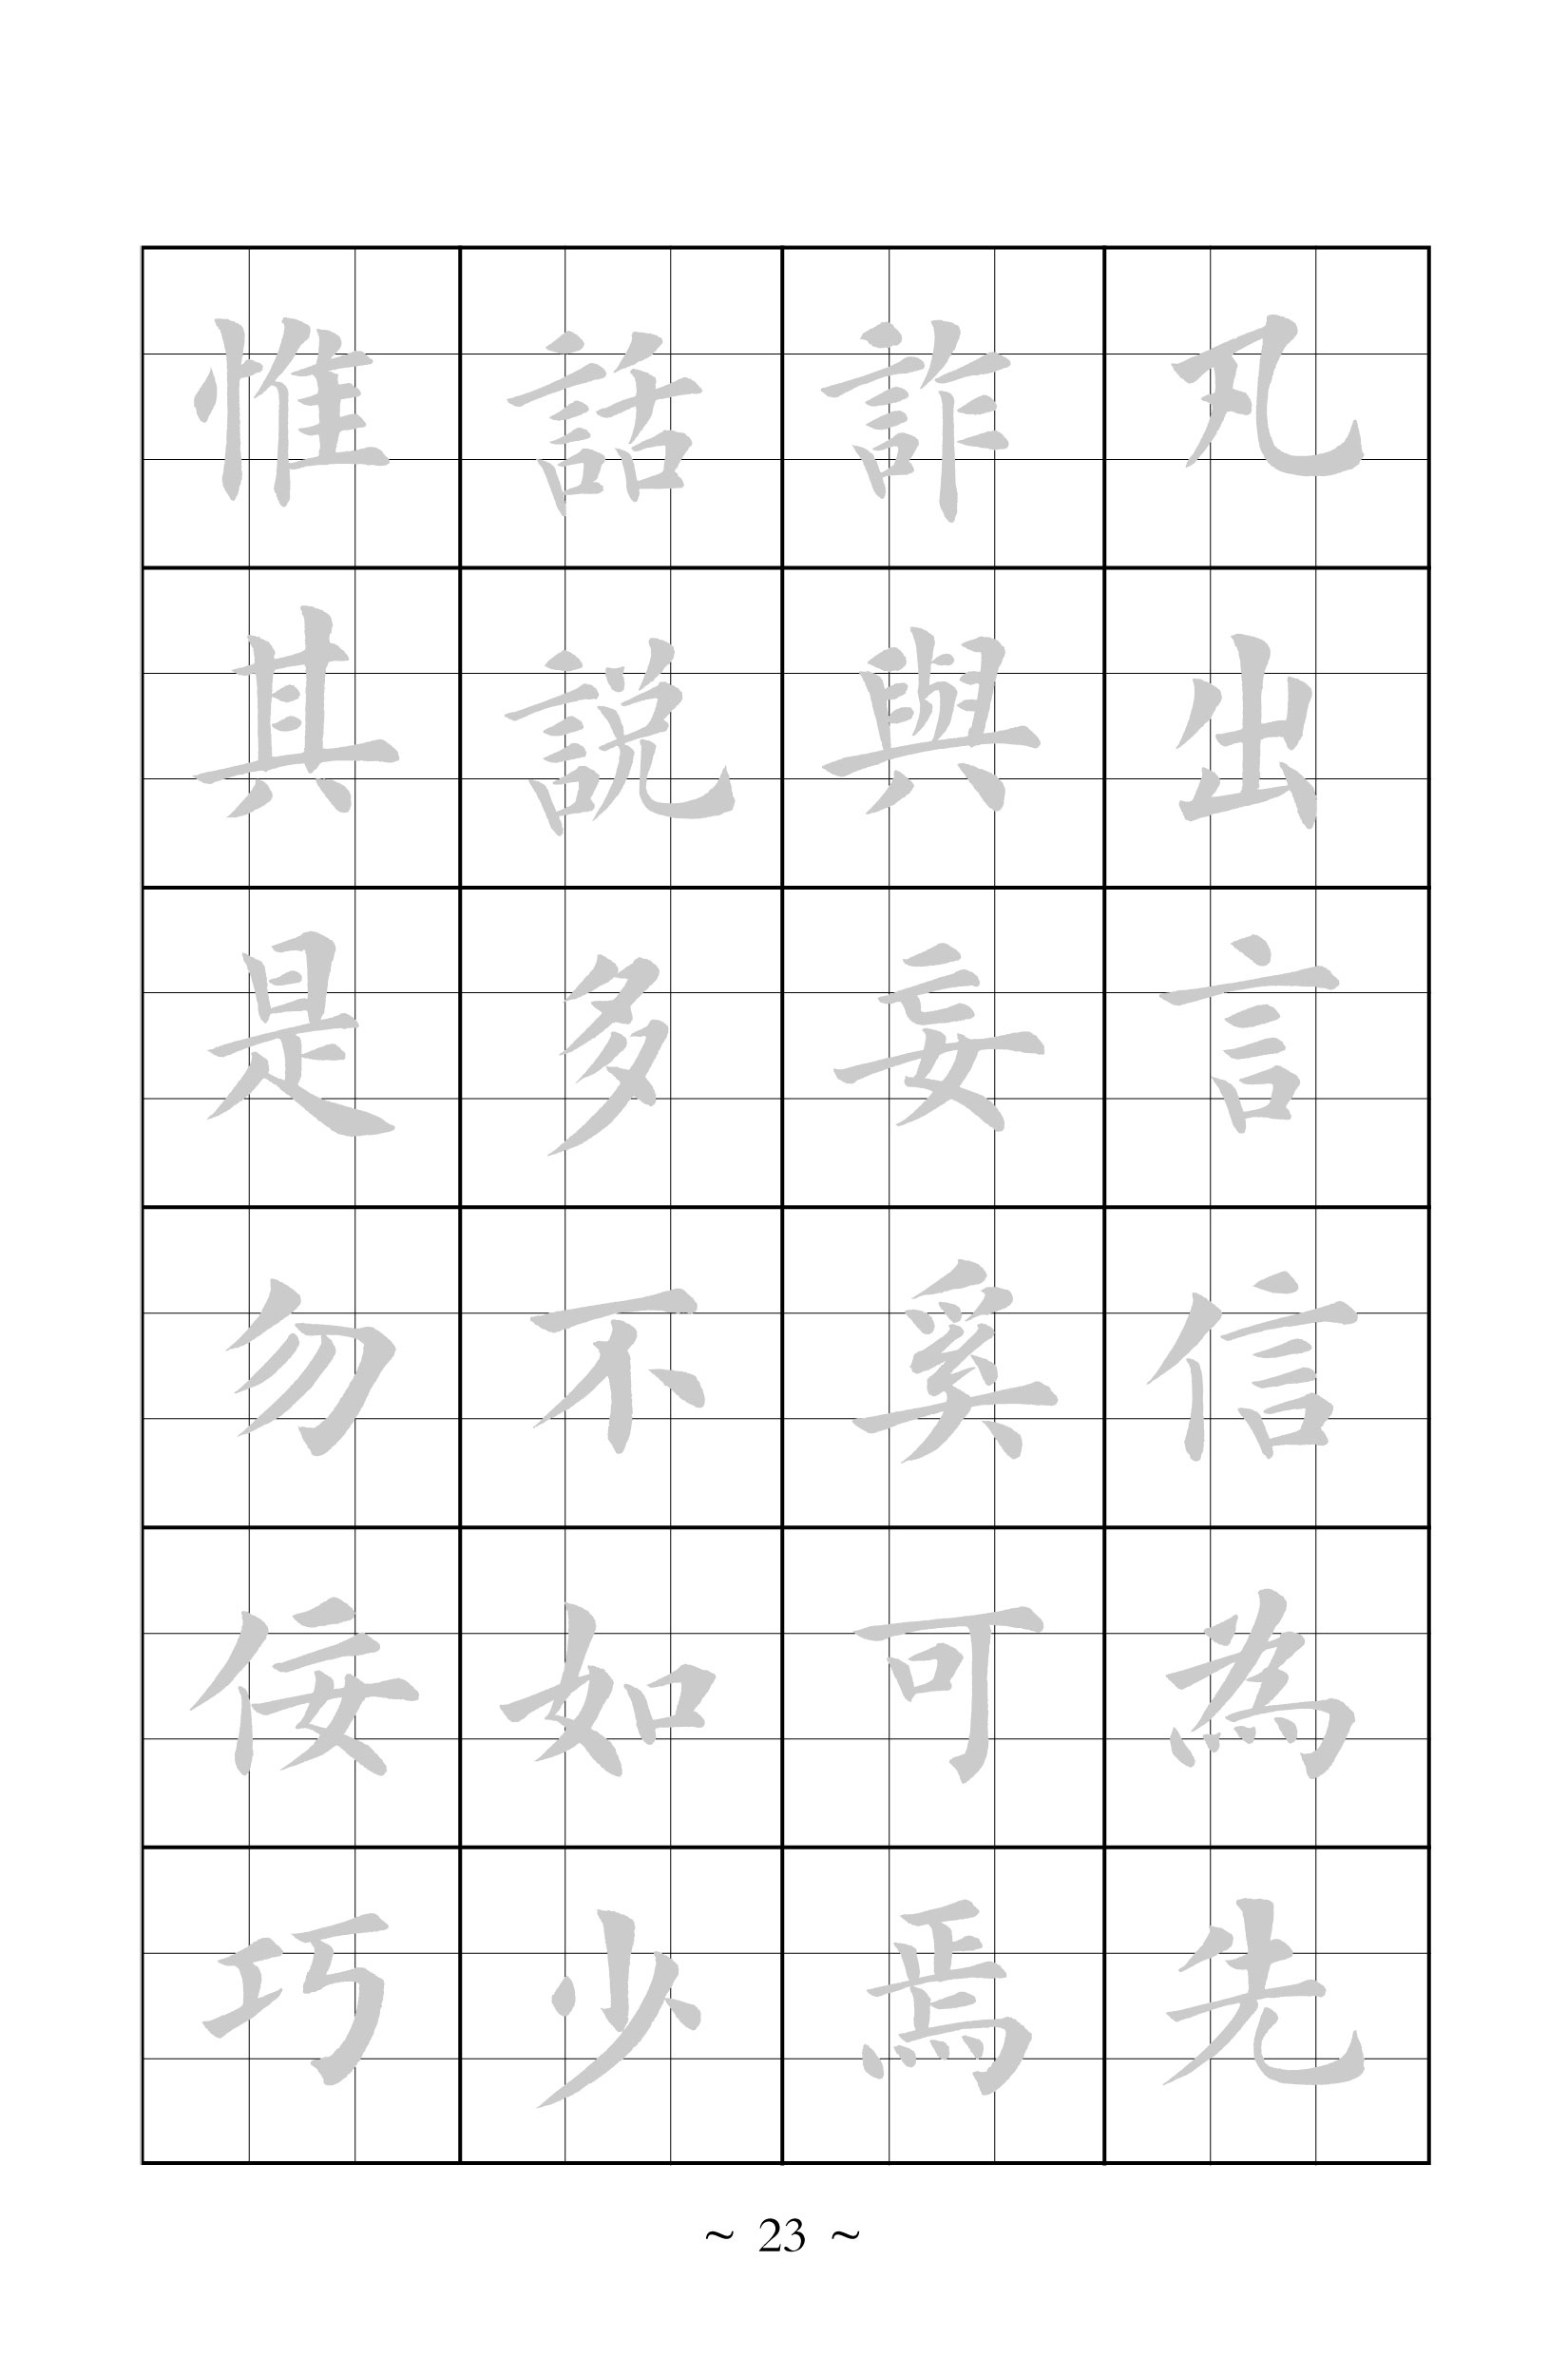 凡出言信為先
詐與妄奚可焉
話說多不如少
惟其是勿佞巧
~ 23 ~